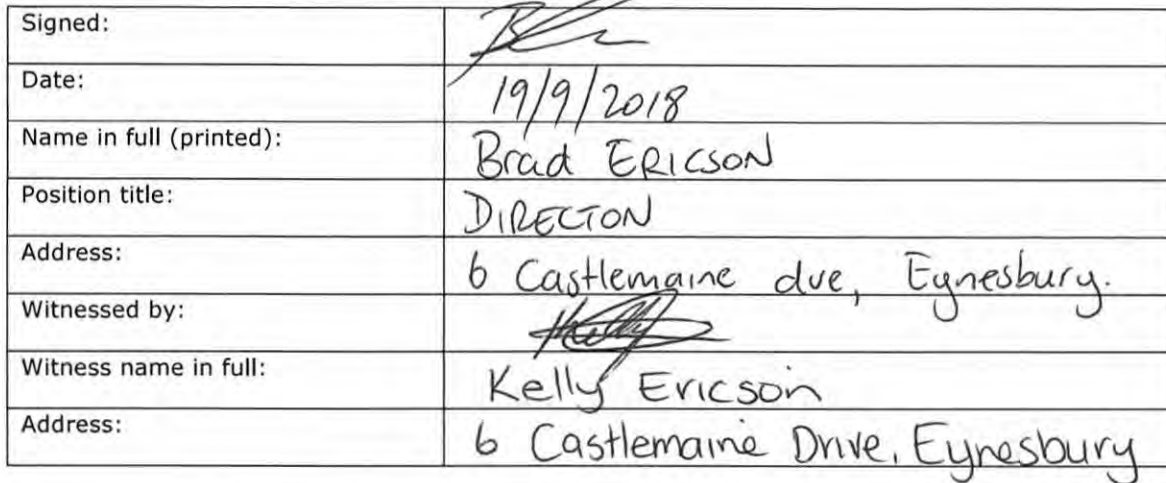 Signed:
Date: 19/9/2018
Name in full (printed): Brad ERICSON
Position title: DIRECTOR
Address: 6 Castlemaine dve, Eynesbury.
Witnessed by:
Witness name in full: Kelly Ericson
Address: 6 Castlemaine Drive, Eynesbury